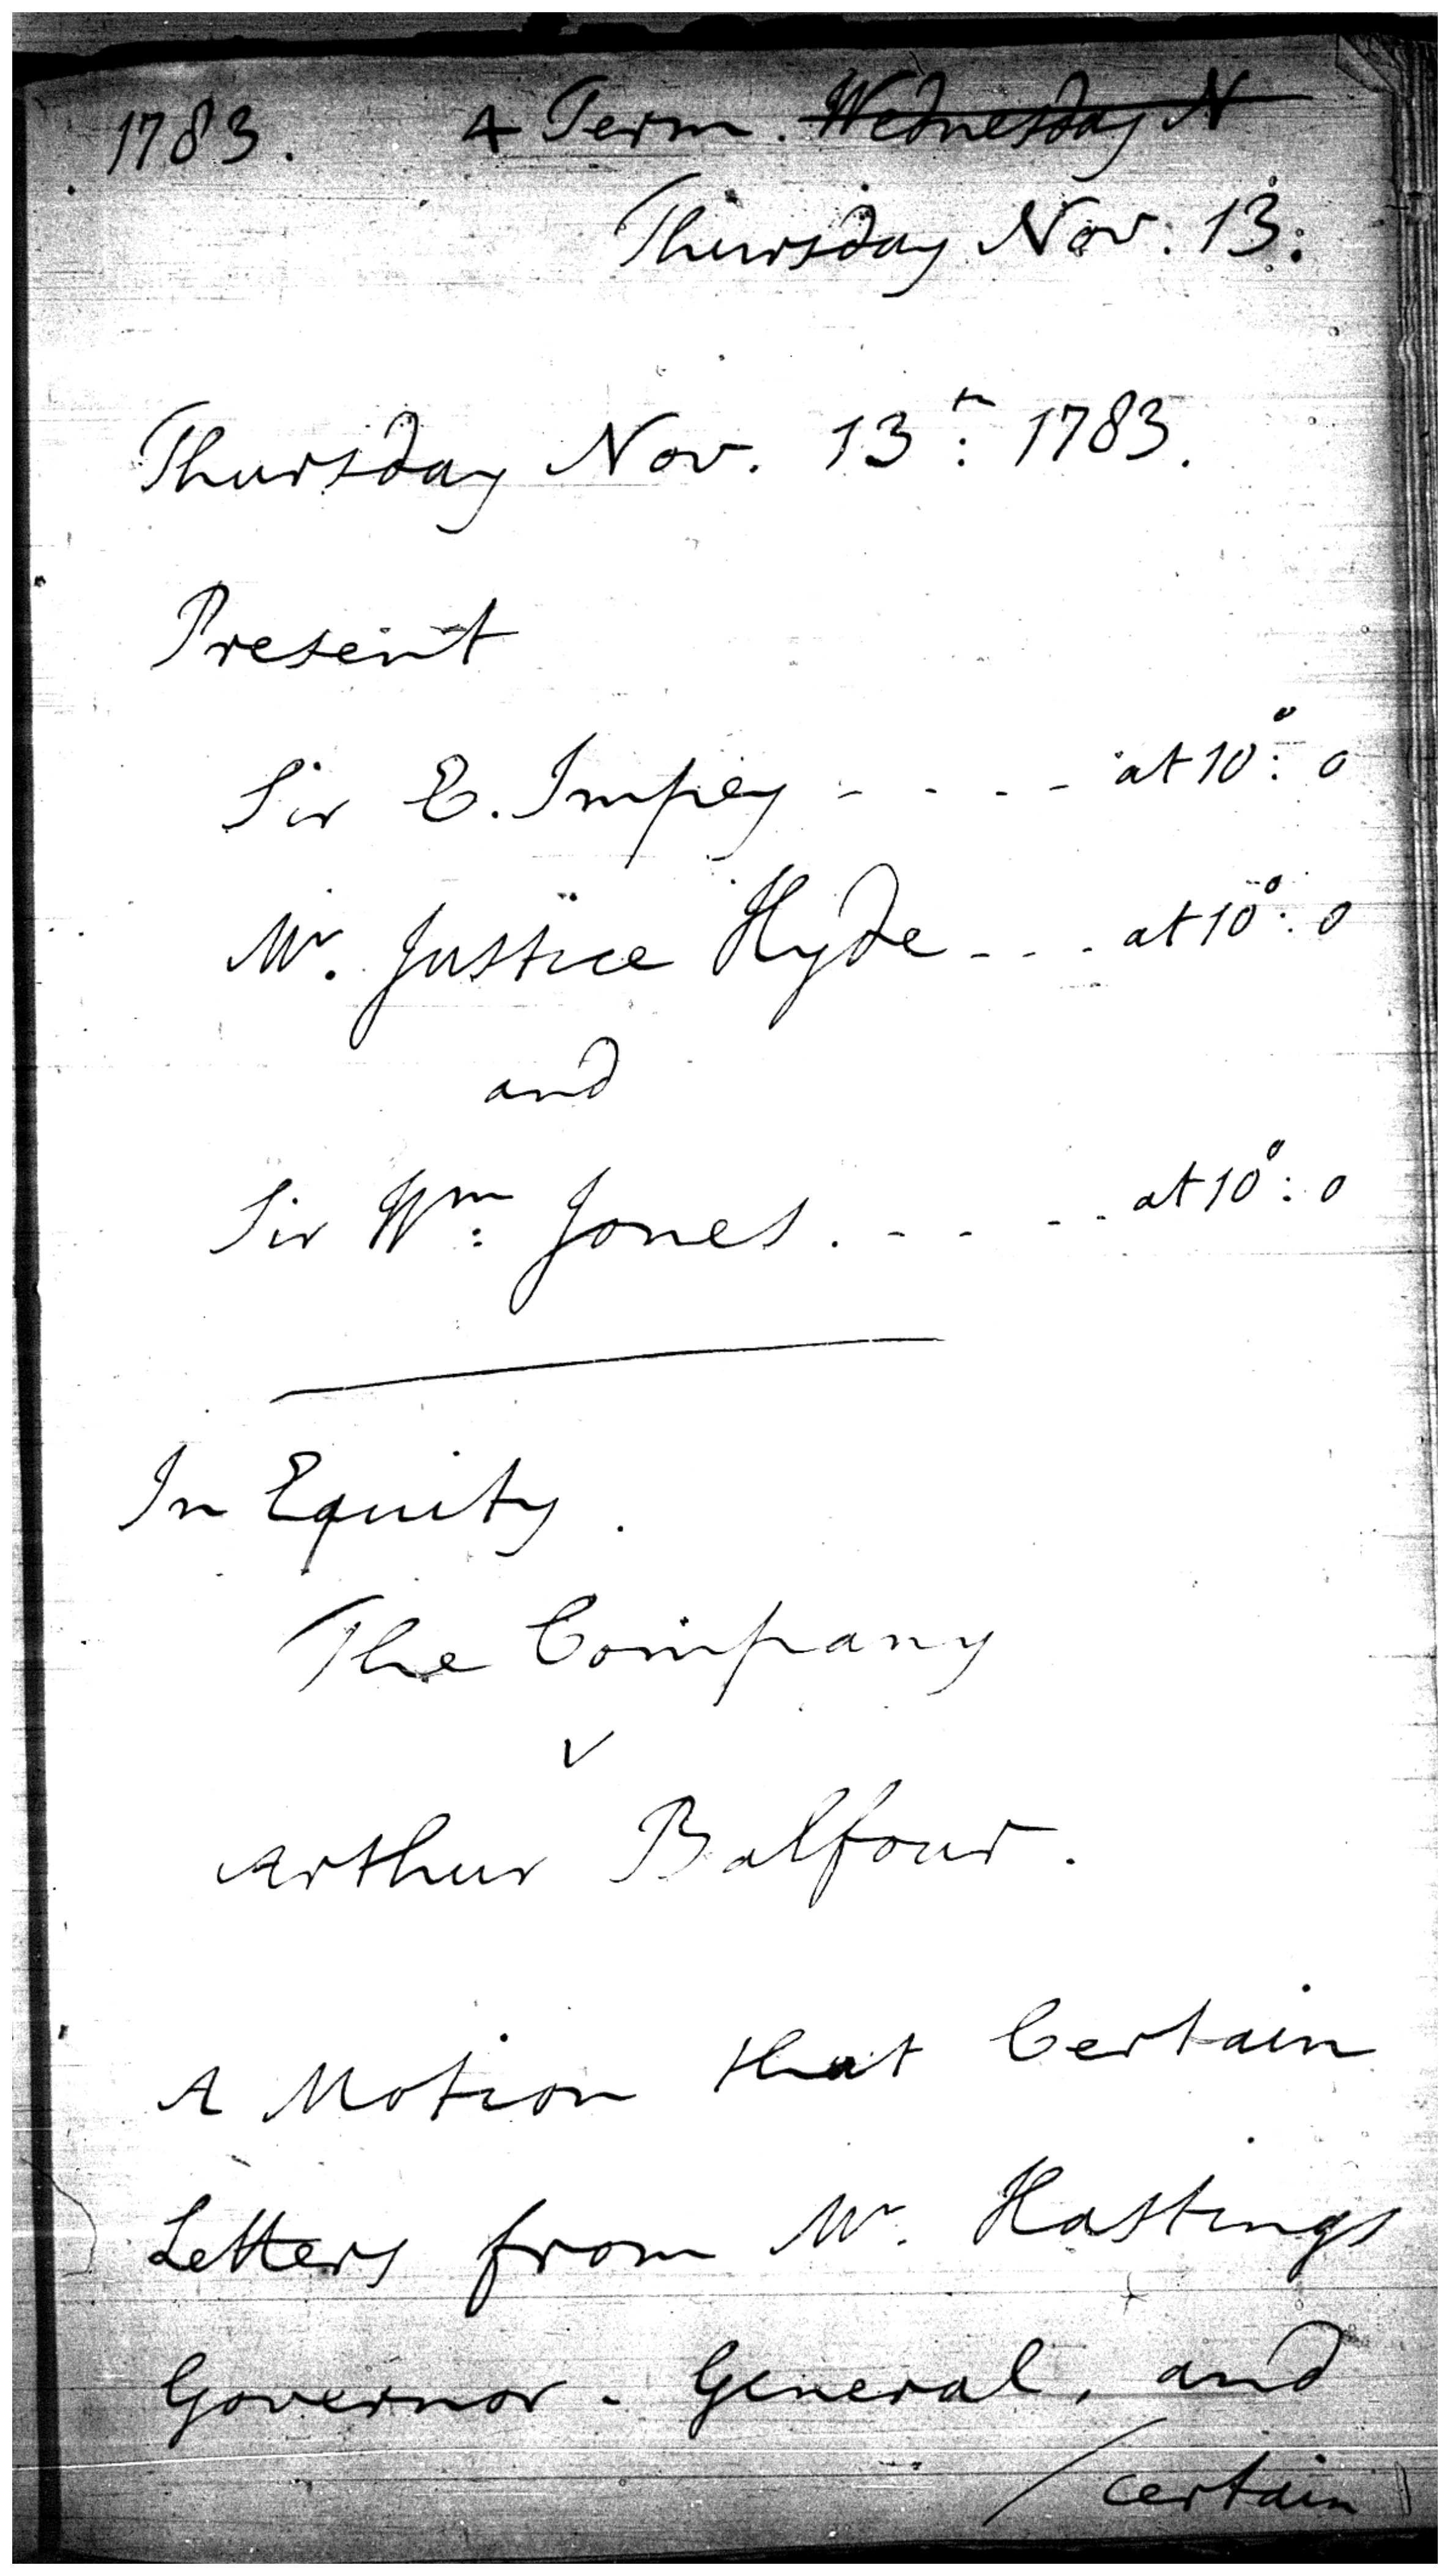 1783. 4 Term. Wednesday N
Thursday Nov. 13.
Thursday Nov. 13th: 1783.
Present
Sir E. Impey - - - - at 10°: 0
Mr. Justice Hyde - - - at 10°: 0
and
Sir Wm: Jones. - - - - at 10°: 0
In Equity.
The Company
v
Arthur Balfour.
A Motion that Certain
Letters from Mr. Hastings
Governor-General, and
/certain